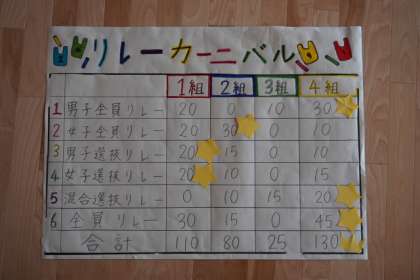 リレーカーニバル
1組 2組 3組 4組
1 男子全員リレー 20 0 10 30
2 女子全員リレー 20 30 0 10
3 男子選抜リレー 20 15 0 10
4 女子選抜リレー 20 10 0 15
5 混合選抜リレー 0 10 15 20
6 全員リレー 30 15 0 45
合計 110 80 25 130